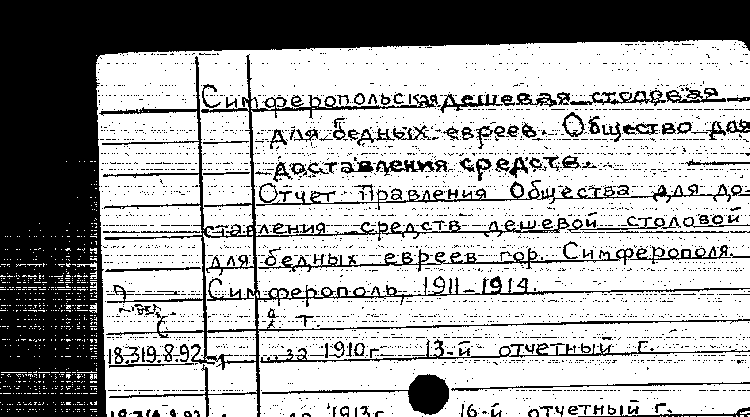 Симферопольская дешевая столовая
для бедных евреев. Общество для
доставления средств.
Отчет Правления Общества для до-
ставления средств дешевой столовой
для бедных евреев гор. Симферополя.
Симферополь, 1911-1914.
2 т.
18.319.8.92 -1 ...за 1910г. 13-й отчетный г.
1913г. 16-й отчетный г.